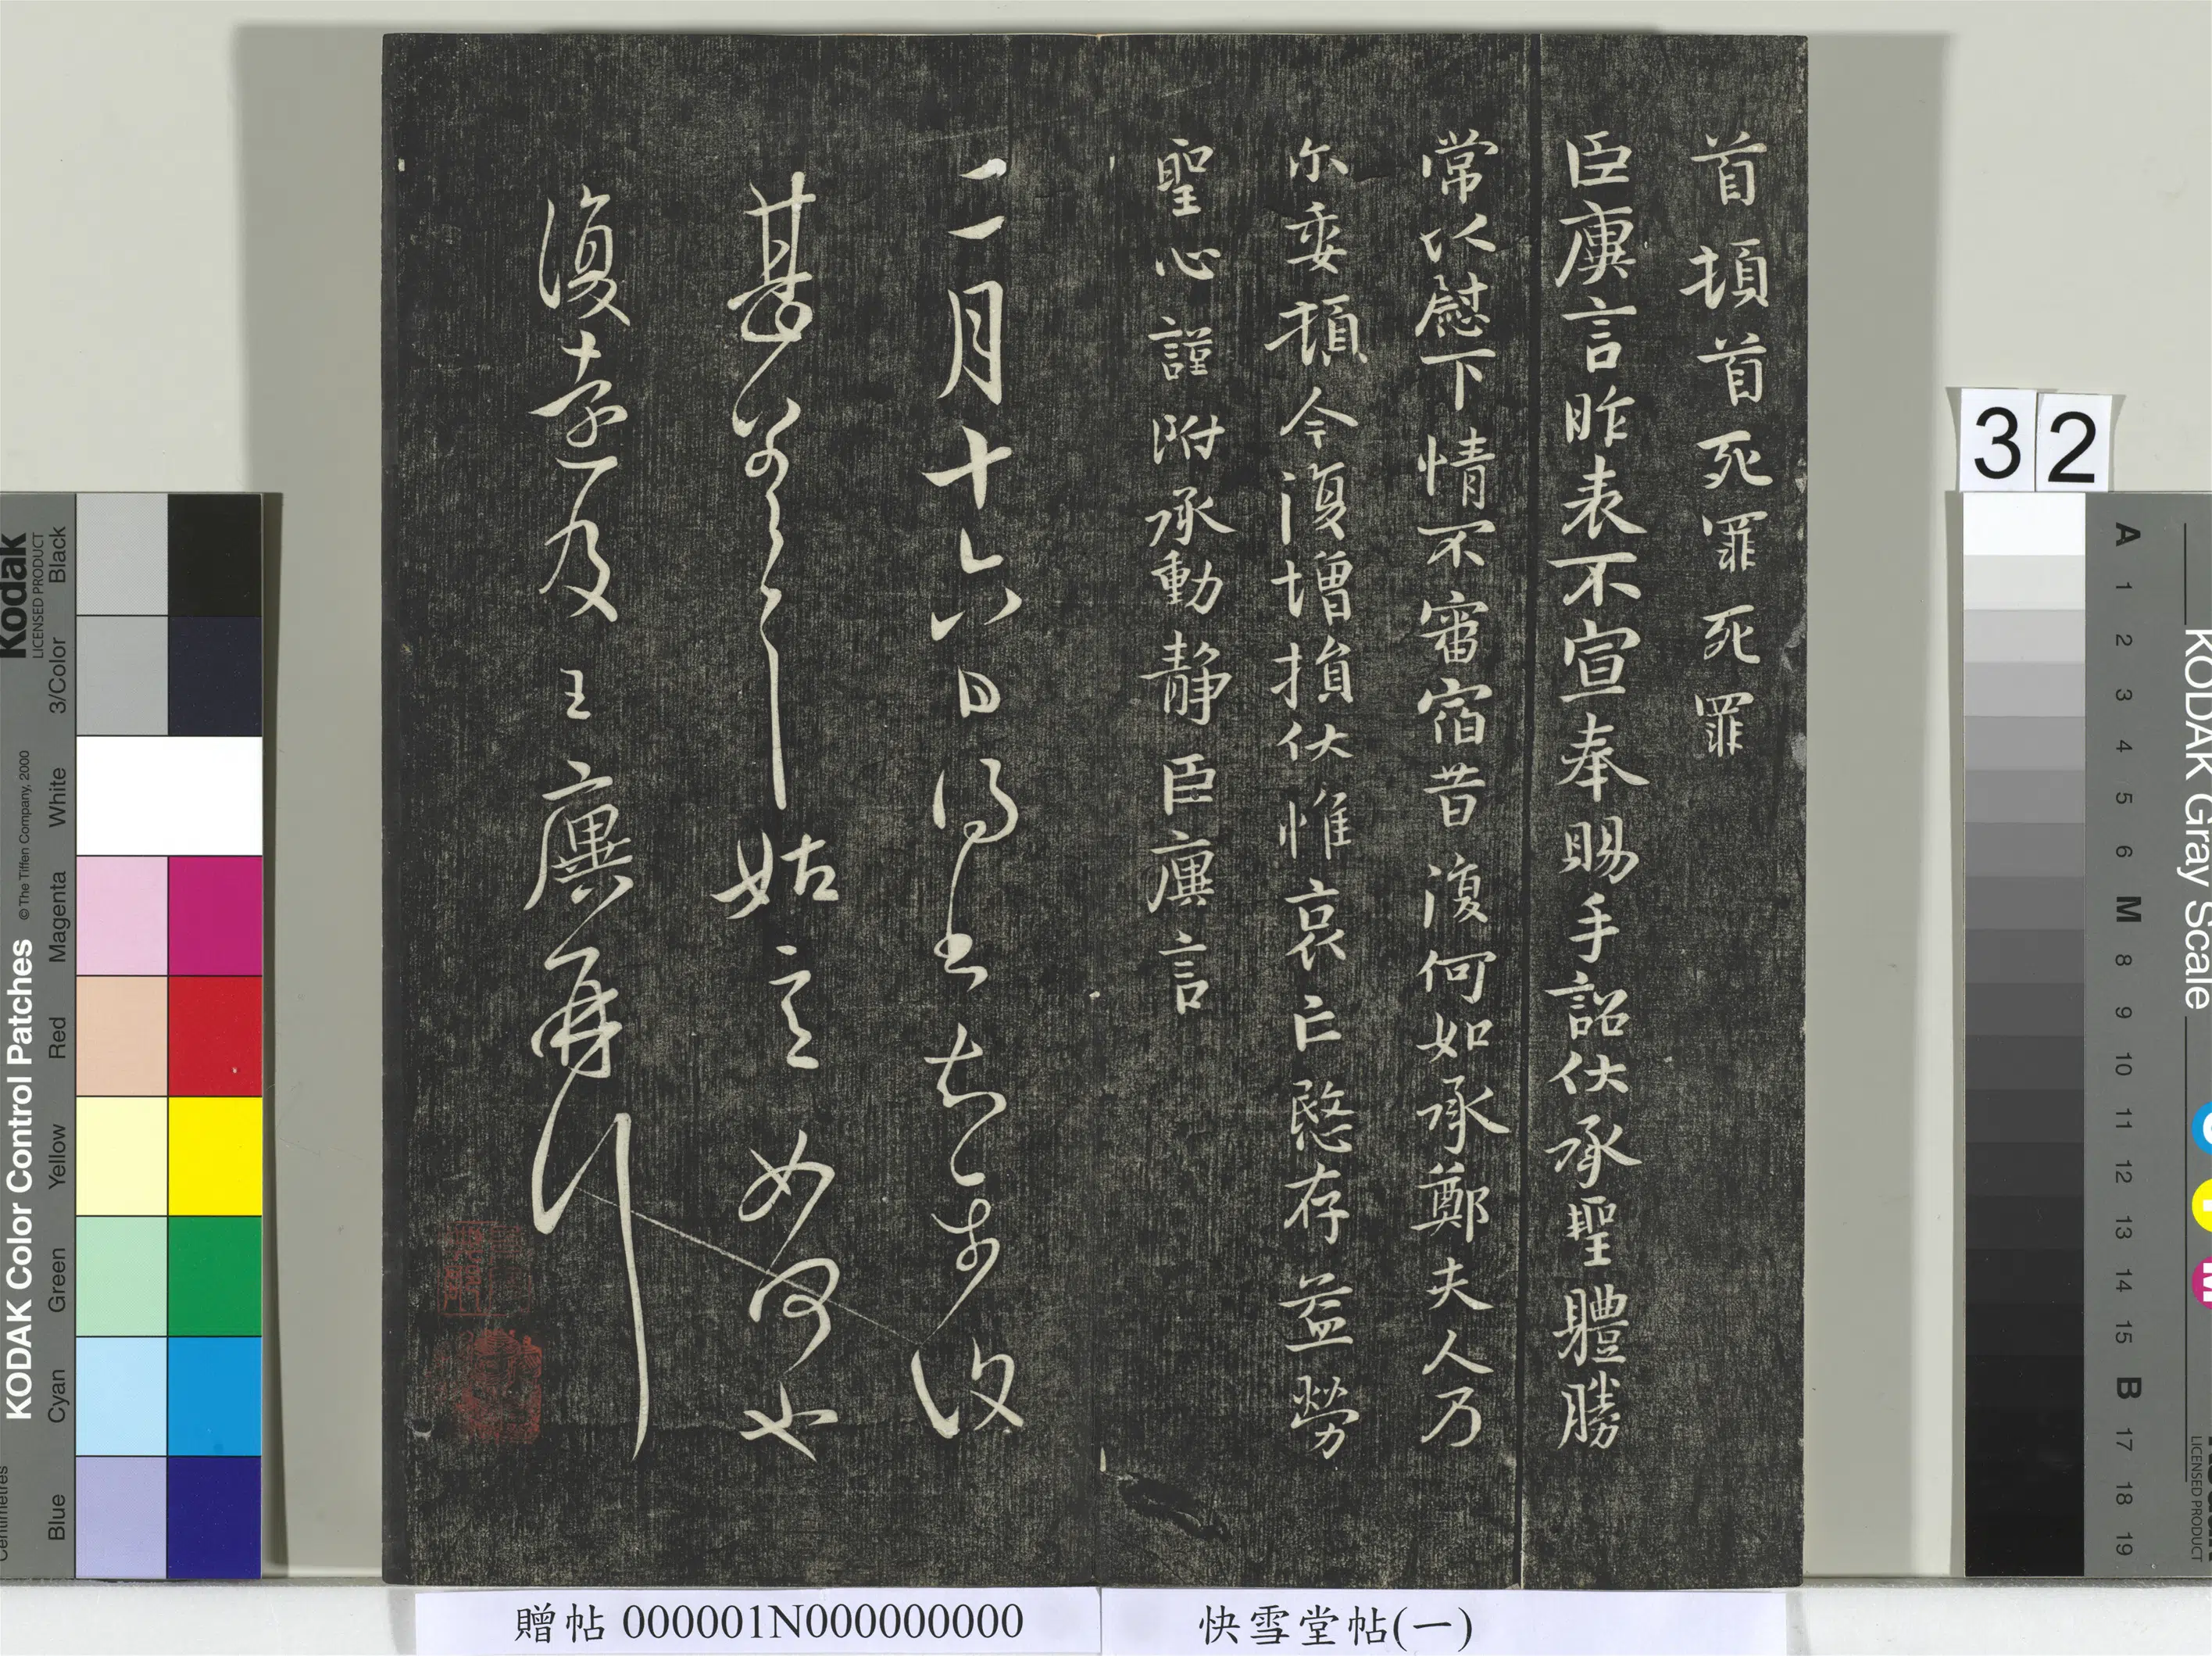 首頓首死罪死罪
臣廙言昨表不宣奉賜手詔伏承聖體勝
常以慰下情不審宿昔復何如承鄭夫人乃
尓委頓今復增損伏惟哀亡愍存益勞
聖心謹附承動靜臣廙言
二月十六日得書知
甚 姑 如何也
復 及王廙再
贈帖 000001N000000000
快雪堂帖(一)
32
KODAK Color Control Patches
© The Tiffen Company, 2000
Kodak
LICENSED PRODUCT
Centimetres
Blue
Cyan
Green
Yellow
Red
Magenta
White
3/Color
Black
KODAK Gray Scale
LICENSED PRODUCT
A 1 2 3 4 5 6 M 8 9 10 11 12 13 14 15 B 17 18 19
C
Y
M